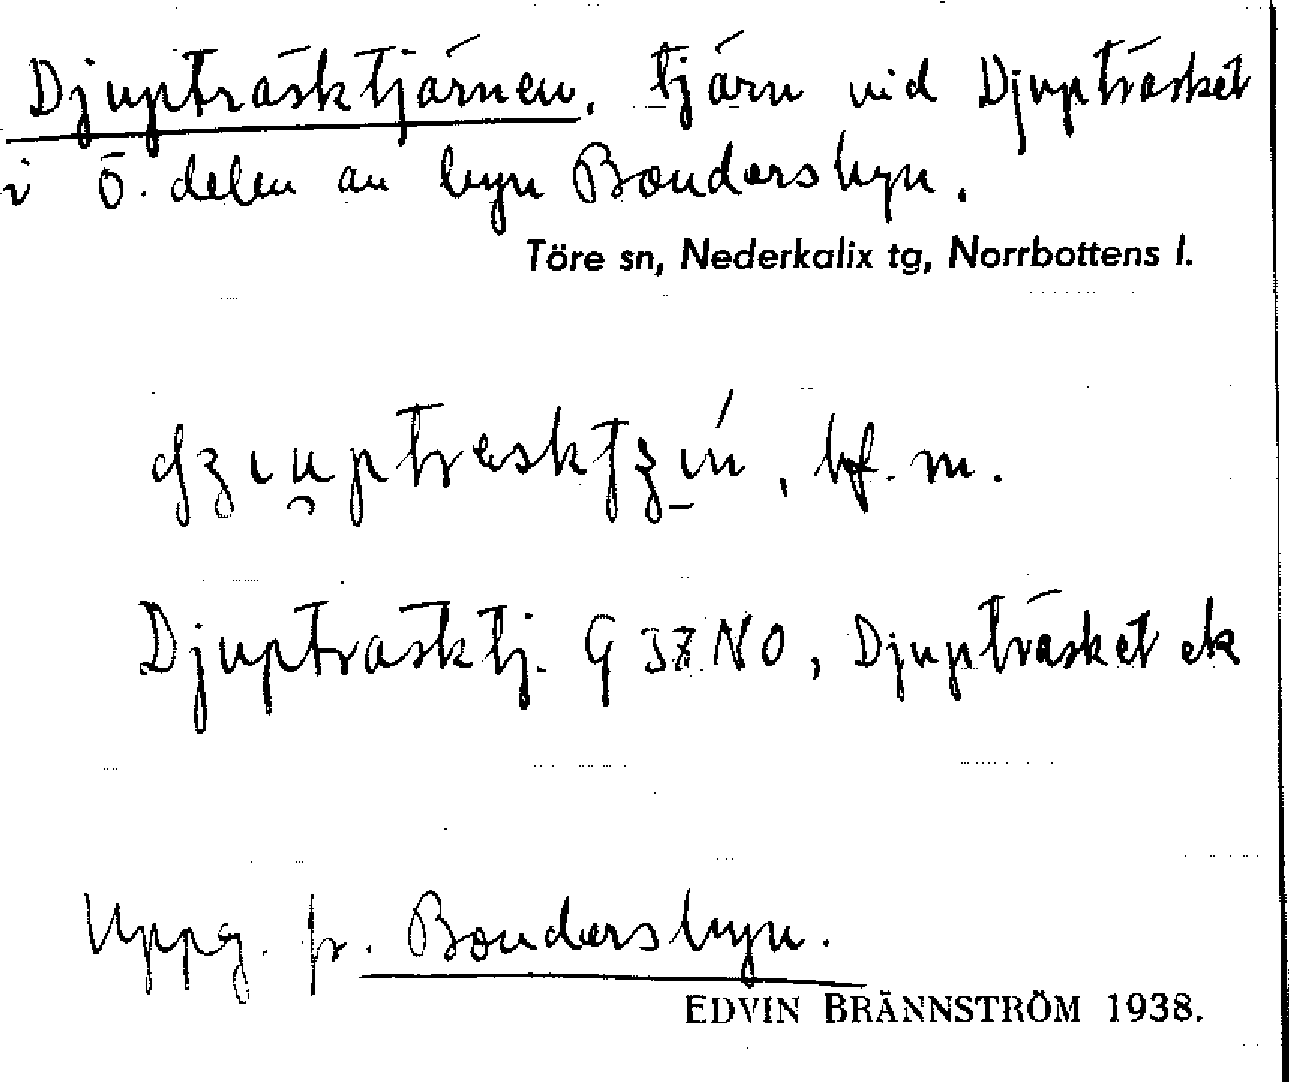 Djupträsktjärnen. tjärn vid Djupträsket
i Ö. delen av byn Bondersbyn.
Töre sn, Nederkalix tg, Norrbottens l.
bf. m.
Djupträsktj. G 37 NO, Djupträsket ek
Uppg. fr. Bondersbyn.
EDVIN BRÄNNSTRÖM 1938.